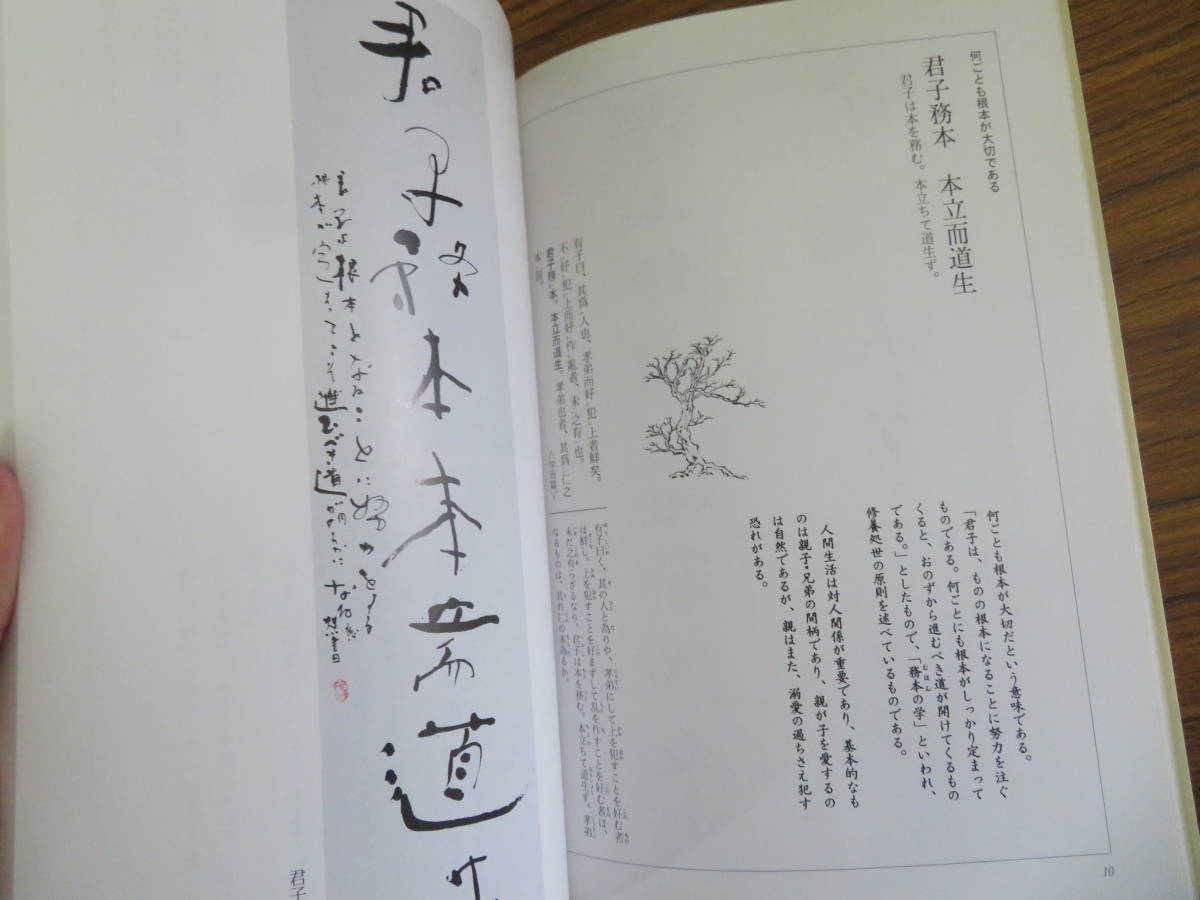 何ごとも根本が大切である
君子務本　本立而道生
君子は本を務む。本立ちて道生ず。
何ごとも根本が大切だという意味である。
「君子は、ものの根本になることに努力を注ぐ
ものである。何ごとにも根本がしっかり定まって
くると、おのずから進むべき道が開けてくるもの
である。」としたもので、「務本の学」といわれ、
修養処世の原則を述べているものである。
人間生活は対人関係が重要であり、基本的なも
のは親子・兄弟の間柄であり、親が子を愛するの
は自然であるが、親はまた、溺愛の過ちさえ犯す
恐れがある。
有子曰、其爲人也、孝弟而好犯上者鮮矣。
不好犯上而好作亂者、未之有也。
君子務本。本立而道生。孝弟也者、其爲仁之
本與。
〈学而篇〉
有子曰く、其の人と為りや、孝弟にして上を犯すことを好む者
は鮮し。上を犯すことを好まずして乱を作すことを好む者は、
未だ之有らざるなり。君子は本を務む。本立ちて道生ず。孝弟
なるものは、其れ仁の本為るか。
10
君子務本本立而道生
君子は根本となることに努力をする
根本が定まってこそ進むべき道が明らかになる
君子